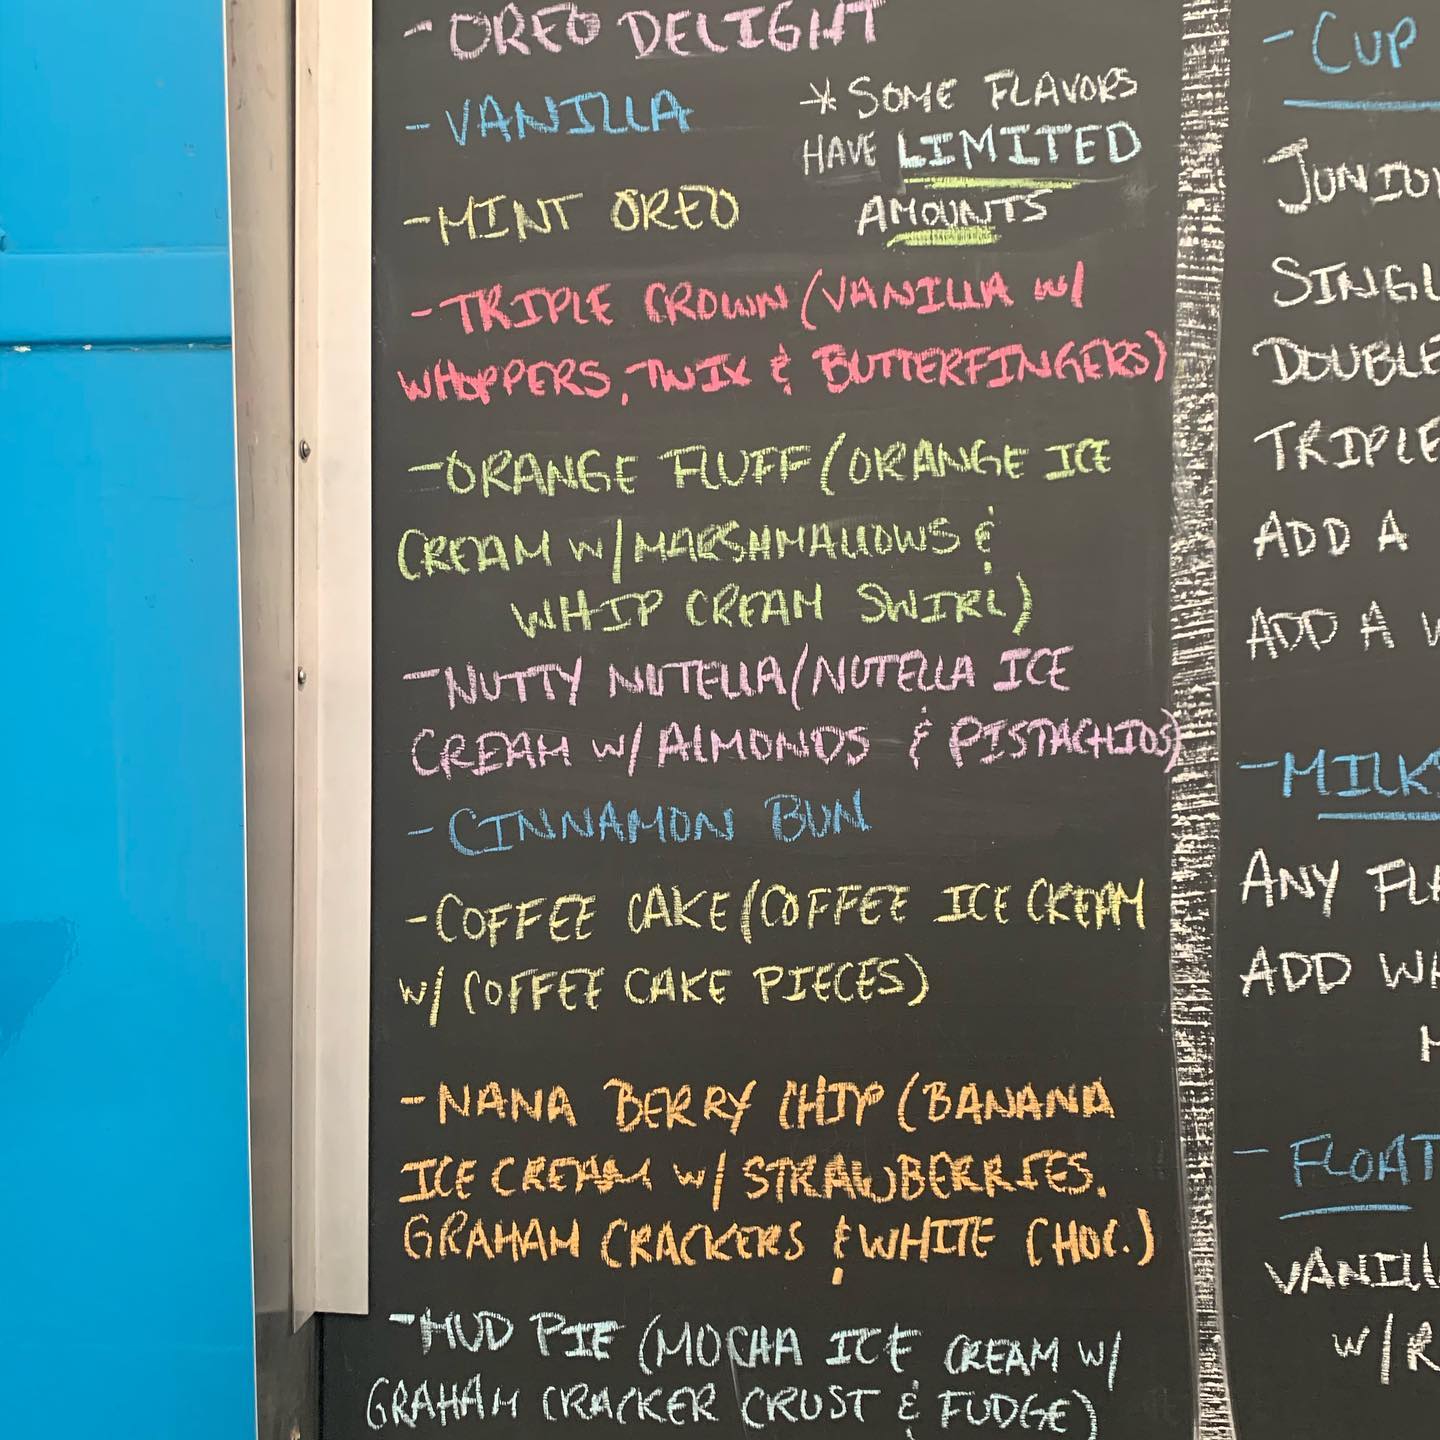 - OREO DELIGHT
- VANILLA
* SOME FLAVORS
HAVE LIMITED
AMOUNTS
- MINT OREO
- TRIPLE CROWN (VANILLA W/
WHOPPERS, TWIX & BUTTERFINGERS)
- ORANGE FLUFF (ORANGE ICE
CREAM W/ MARSHMALLOWS &
WHIP CREAM SWIRL)
- NUTTY NUTELLA (NUTELLA ICE
CREAM W/ ALMONDS & PISTACHIOS)
- CINNAMON BUN
- COFFEE CAKE (COFFEE ICE CREAM
W/ COFFEE CAKE PIECES)
- NANA BERRY CHIP (BANANA
ICE CREAM W/ STRAWBERRIES,
GRAHAM CRACKERS & WHITE CHOC.)
- MUD PIE (MOCHA ICE CREAM W/
GRAHAM CRACKER CRUST & FUDGE)
- CUP
JUNIO
SINGL
DOUBLE
TRIPLE
ADD A
ADD A
- MILKS
ANY FLA
ADD WH
- FLOAT
VANILL
W/ R